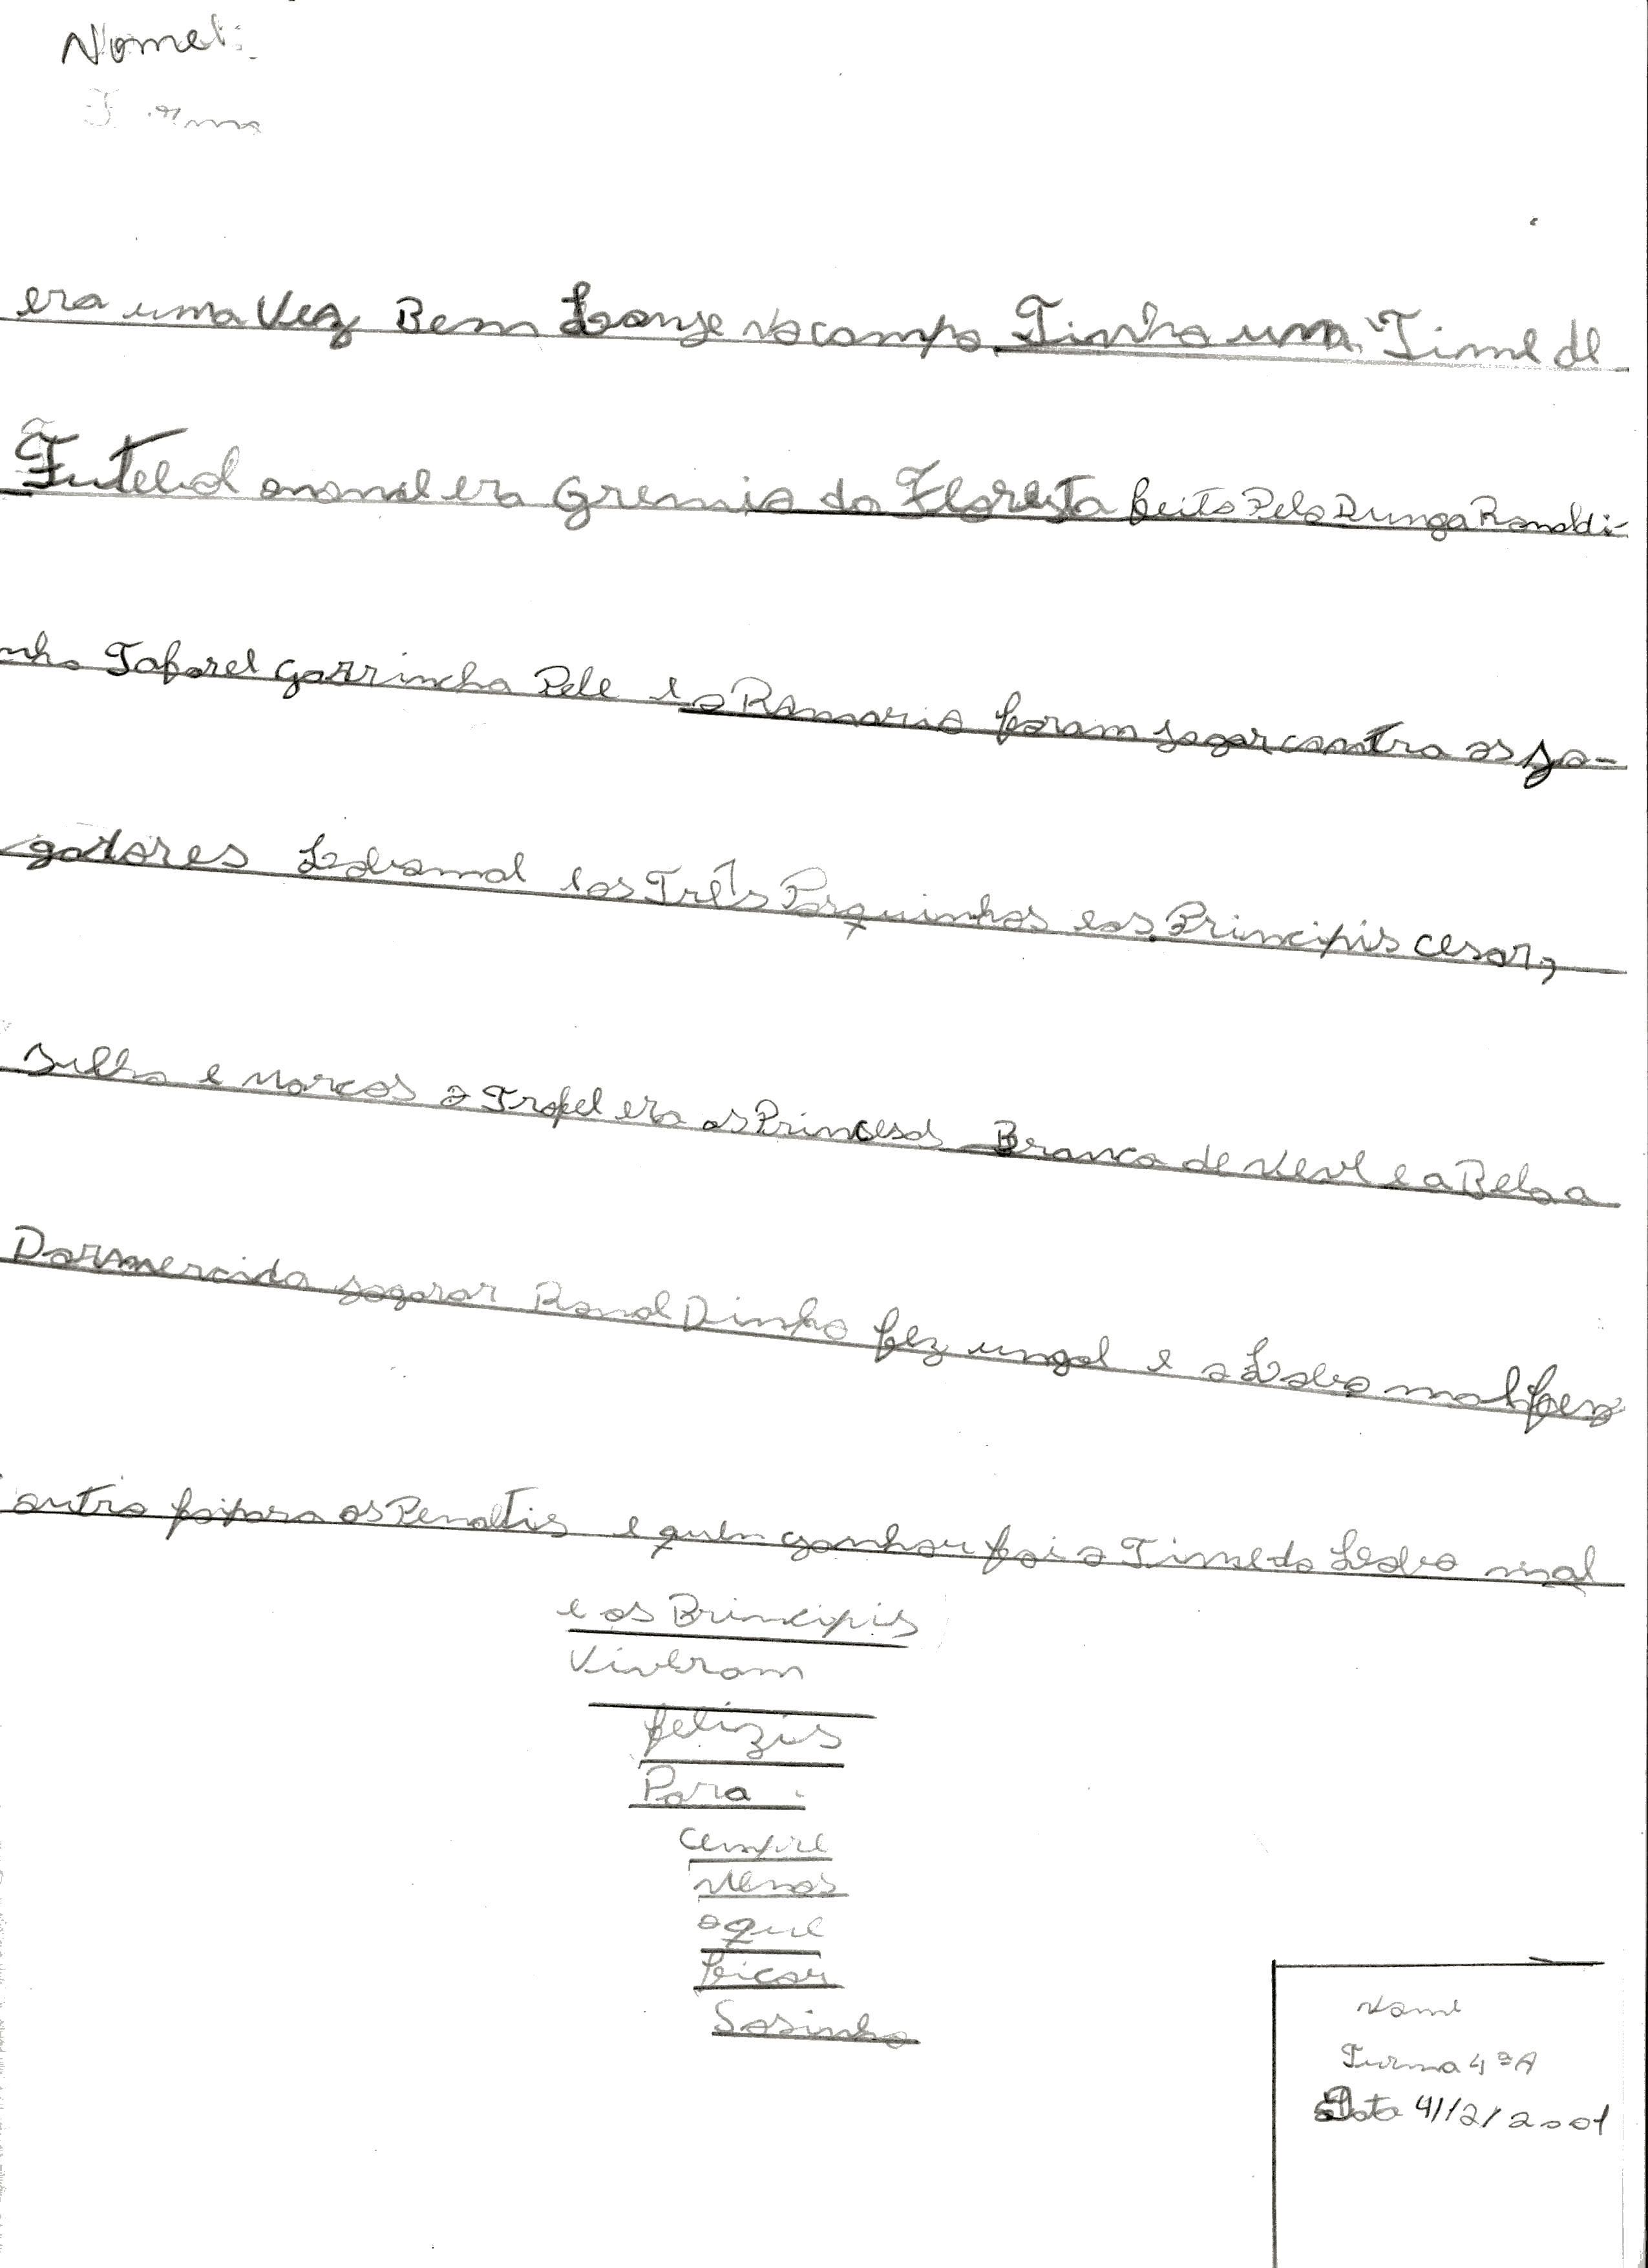 Nome:
era uma Vez Bem Lonje No campo Tinha um Time de
Futebol o nome era Gremio da Floresta feito Pelo Dunga Ronaldi-
nho Tafarel Garrincha Pele e o Romario foram jogar contra os jo-
gadores Lobo mal e os Três Porquinhos e os Principis cesar,
Julho e Marcos o Trofel era as Princesas Branca de Neve e a Bela a
Dormercida jogarar RonalDinho fez um gol e o Lobo mal fez
outro foi para os Penaltis e quen ganhou foi o Time do Lobo mal
e os Brincipis
Viveram
felizis
Para
cempre
Menos
o que
ficou
Sosinho
Nome
Turma 4ªA
Data 4/12/2001